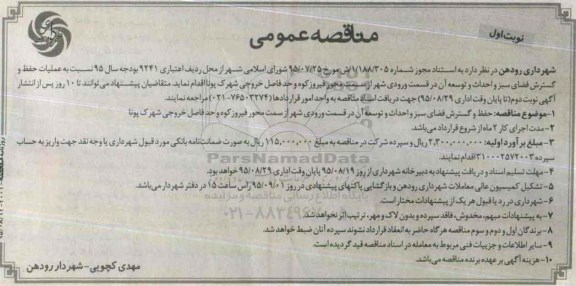 نوبت اول
مناقصه عمومی
شهرداری رودهن در نظر دارد به استناد مجوز شماره ۱/۱۸۸/۳۰۵/ش مورخ ۹۵/۰۷/۲۵ شورای اسلامی شهر از محل ردیف اعتباری ۹۲۴۱ بودجه سال ۹۵ نسبت به عملیات حفظ و
گسترش فضای سبز و احداث و توسعه آن در قسمت ورودی شهر از سمت محور فیروزکوه و حد فاصل خروجی شهرک پونا اقدام نماید. متقاضیان پیشنهاد می‌توانند تا ۱۰ روز پس از انتشار
آگهی نوبت دوم (تا پایان وقت اداری ۹۵/۰۸/۲۹) جهت دریافت اسناد مناقصه به واحد امور قراردادها (۷۶۵۰۳۲۷۴-۰۲۱) مراجعه نمایند.
۱-موضوع مناقصه: حفظ و گسترش فضای سبز و احداث و توسعه آن در قسمت ورودی شهر از سمت محور فیروزکوه و حد فاصل خروجی شهرک پونا
۲- مدت اجرای کار ۲ ماه از شروع قرارداد می‌باشد.
۳- مبلغ برآورد اولیه: ۲,۳۰۰,۰۰۰,۰۰۰ ریال و سپرده شرکت در مناقصه به مبلغ ۱۱۵,۰۰۰,۰۰۰ ریال به صورت ضمانت‌نامه بانکی مورد قبول شهرداری یا وجه نقد جهت واریز به حساب
سپرده ۳۱۰۰۰۲۵۷۲۰۰۳ اقدام نمایند.
۴- مهلت تسلیم اسناد و دریافت پیشنهاد به دبیرخانه شهرداری از روز ۹۵/۰۸/۱۹ پایان وقت اداری ۹۵/۰۸/۲۹ خواهد بود.
۵- تشکیل کمیسیون عالی معاملات شهرداری رودهن و بازگشایی پاکتهای پیشنهادی در روز ۹۵/۰۹/۰۱ راس ساعت ۱۵ در دفتر شهردار می‌باشد.
۶- شهرداری در رد یا قبول هر یک از پیشنهادات مختار است.
۷- به پیشنهادات مبهم، مخدوش، فاقد سپرده و بدون لاک و مهر، ترتیب اثر نخواهد شد.
۸- برندگان اول و دوم و سوم مناقصه هرگاه حاضر به انعقاد قرارداد نشوند سپرده آنان ضبط خواهد شد.
۹- سایر اطلاعات و جزییات فنی مربوط به معامله در اسناد مناقصه قید گردیده است.
۱۰- هزینه آگهی بر عهده برنده مناقصه می‌باشد.
مهدی کچویی-شهردار رودهن
ParsNamadData
۰۲۱-۸۸۳۴۹۶